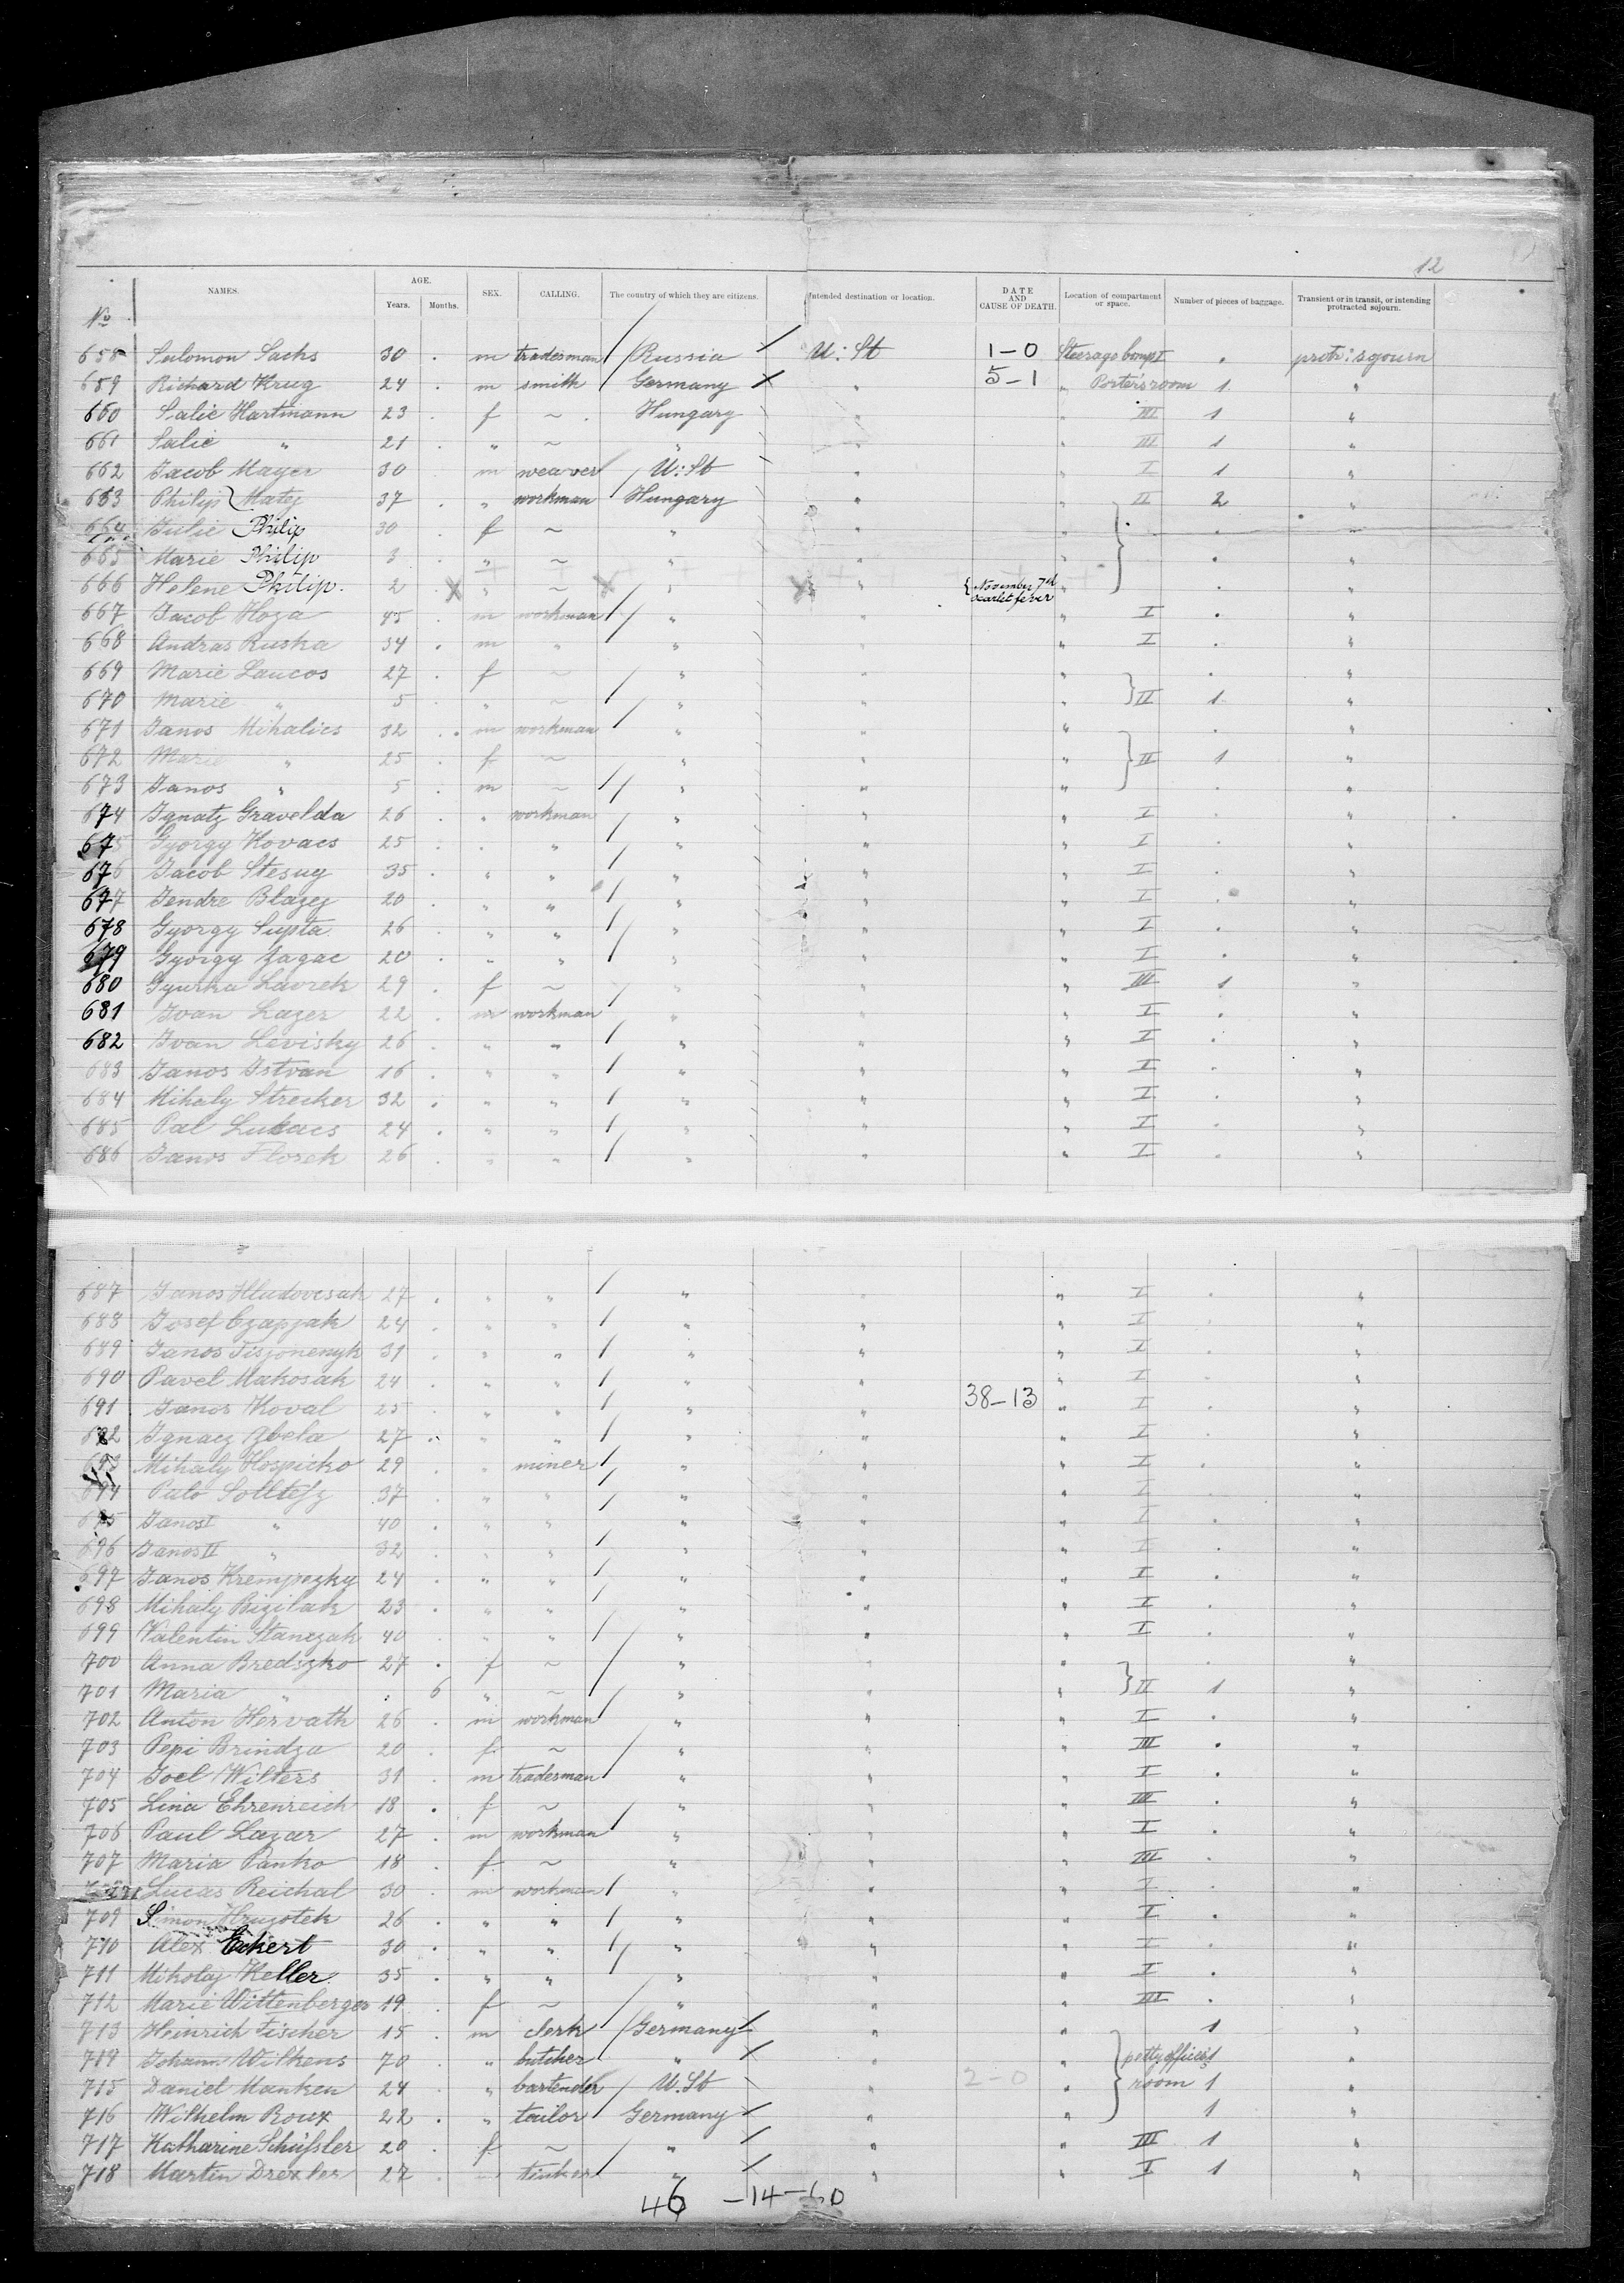 12
No NAMES. AGE. Years. Months. SEX. CALLING. The country of which they are citizens. Intended destination or location. DATE AND CAUSE OF DEATH. Location of compartment or space. Number of pieces of baggage. Transient or in transit, or intending protracted sojourn.
658 Salomon Sachs 30 . m tradesman Russia U: St 1-0 Steerage Comp I . protr: sojourn
659 Richard Krug 24 . m smith Germany " 5-1 " Porter's room 1 "
660 Salie Hartmann 23 . f ~ Hungary " " III 1 "
661 Salie " 21 . " ~ " " " III 1 "
662 Jacob Mayer 30 m weaver U: St " " I 1 "
663 Philip Matz 37 . " workman Hungary " " II 2 "
664 Julie Philip 30 . f ~ " " " . "
665 Marie Philip 3 . " ~ " " " . "
666 Helene Philip. 2 . " ~ " " { November 7th scarlet fever " . "
667 Jacob Hoza 45 . m workman " " " I . "
668 Andras Ruska 34 . m " " " " I . "
669 Marie Laucos 27 . f ~ " " " . "
670 Marie " 5 . " ~ " " " II 1 "
671 Janos Mihalics 32 . m workman " " " . "
672 Marie " 25 . f ~ " " " II 1 "
673 Janos " 5 . m ~ " " " . "
674 Ignatz Gravelda 26 . " workman " " " I . "
675 György Kovacs 25 . " " " " " I . "
676 Jacob Stesuy 35 . " " " " " I . "
677 Jendre Blazej 20 . " " " " " I . "
678 György Supta 26 . " " " " " I . "
679 György Zagac 20 . " " " " " I . "
680 Gyurka Lavrek 29 . f ~ " " " III 1 "
681 Ivan Lazer 22 . m workman " " " I . "
682 Ivan Levisky 26 . " " " " " I . "
683 Janos Istvan 16 . " " " " " I . "
684 Mihaly Strecker 32 . " " " " " I . "
685 Pal Lukacs 24 . " " " " " I . "
686 Janos Florek 26 . " " " " " I . "
687 Janos Hludovcsak 27 . " " " " " I . "
688 Josef Czapjak 24 . " " " " " I . "
689 Janos Tisjonenyk 31 . " " " " " I . "
690 Pavel Makosak 24 . " " " " " I . "
691 Janos Koval 25 . " " " " 38-13 " I . "
692 Ignacz Zbela 27 . " " " " " I . "
693 Mihaly Hospicko 29 . " miner " " " I . "
694 Palo Solltejz 37 . " " " " " I . "
695 Janos I " 40 . " " " " " I . "
696 Janos II " 32 . " " " " " I . "
697 Janos Krempozky 24 . " " " " " I . "
698 Mihaly Bizilak 23 . " " " " " I . "
699 Valentin Stanczak 40 . " " " " " I . "
700 Anna Bredszko 27 . f ~ " " " . "
701 Maria " . 6 " ~ " " " II 1 "
702 Anton Hervath 26 . m workman " " " I . "
703 Pepi Brindza 20 . f ~ " " " III . "
704 Joel Wilters 31 . m tradesman " " " I . "
705 Lina Ehrenreich 18 . f ~ " " " III . "
706 Paul Lazar 27 . m workman " " " I . "
707 Maria Panko 18 . f ~ " " " III . "
Lucas Reichal 30 . m workman " " " I . "
709 Simon Hruzotek 26 . " " " " " I . "
710 Alex Eckert 30 . " " " " " I . "
711 Mikolaj Keller 35 . " " " " " I . "
712 Marie Wittenberger 19 . f ~ " " " III . "
713 Heinrich Fischer 15 . m clerk Germany " " 1 "
714 Johann Wilkens 70 . " butcher " " " petty officers 1 "
715 Daniel Manken 24 . " bartender U. St " 2-0 " room 1 "
716 Wilhelm Roux 22 . " tailor Germany " " 1 "
717 Katharine Schüssler 20 . f ~ " " " III 1 "
718 Martin Drexler 27 . tinker " " " I 1 "
46 -14-60